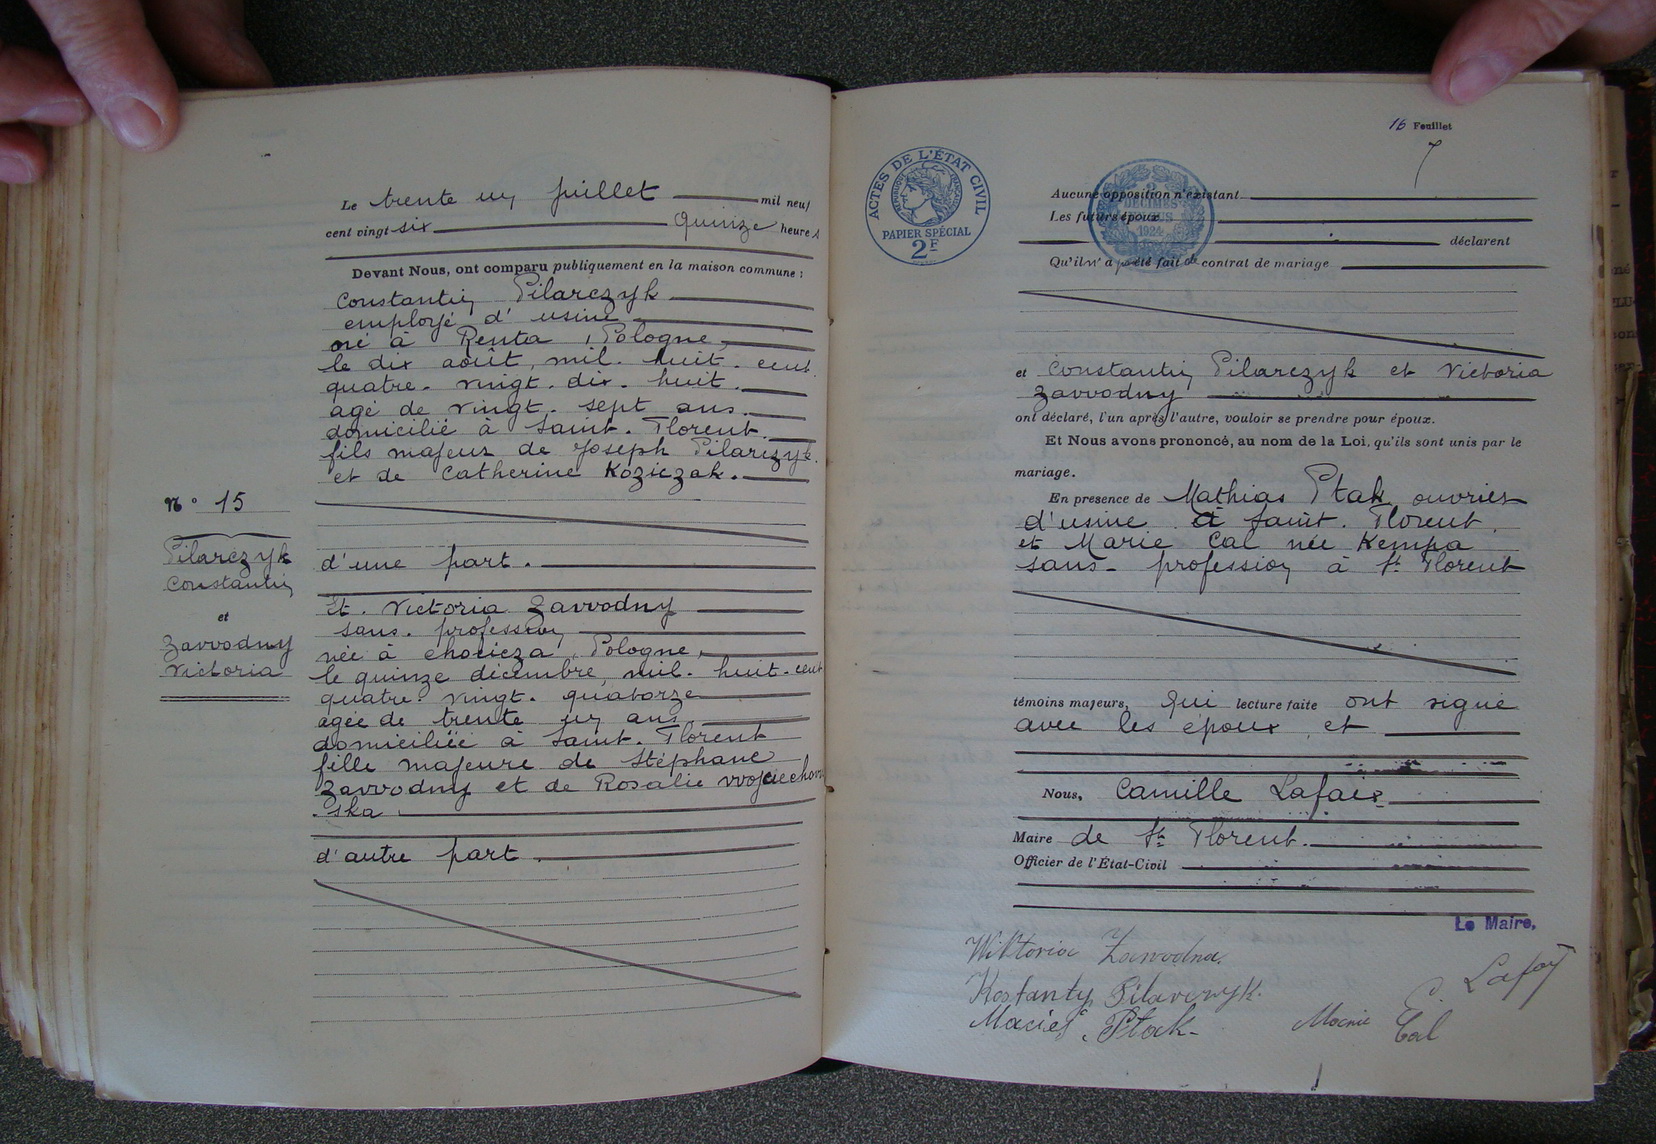 Le trente un juillet mil neuf
cent vingt six Quinze heures
Devant Nous, ont comparu publiquement en la maison commune :
Constantin Pilarczyk
employé d'usine
né à Renta, Pologne,
le dix août, mil. huit. cent.
quatre. vingt. dix. huit.
agé de vingt. sept ans.
domicilié à Saint. Florent.
fils majeur de Joseph Pilarczyk.
et de Catherine Koziczak.
N° 15
Pilarczyk
Constantin
et
Zavvodny
Victoria
d'une part.
Et. Victoria Zavvodny
sans. profession
née à Chocicza, Pologne,
le quinze décembre, mil. huit-cent
quatre. vingt. quatorze
agée de trente un ans
domiciliée à Saint. Florent
fille majeure de Stéphane
Zavvodny et de Rosalie vvojciechovv
ska
d'autre part.
16 Feuillet
7
ACTES DE L'ÉTAT CIVIL
RÉPUBLIQUE FRANÇAISE
PAPIER SPÉCIAL
2F
2
DÉCIMES
EN SUS
1924
Aucune opposition n'existant
Les futurs époux
déclarent
Qu'il n'a pas été fait de contrat de mariage
et Constantin Pilarczyk et Victoria
Zavvodny
ont déclaré, l'un après l'autre, vouloir se prendre pour époux.
Et Nous avons prononcé, au nom de la Loi, qu'ils sont unis par le
mariage.
En presence de Mathias Ptak ouvrier
d'usine à Saint. Florent
et Marie Cal née Kempa
sans- profession à St Florent
témoins majeurs, Qui lecture faite ont signé
avec les époux, et
Nous, Camille Lafaix
Maire de St Florent.
Officier de l'État-Civil
Le Maire,
Wiktoria Zawodna.
Kostanty Pilarczyk.
Maciej Ptak-
Cal